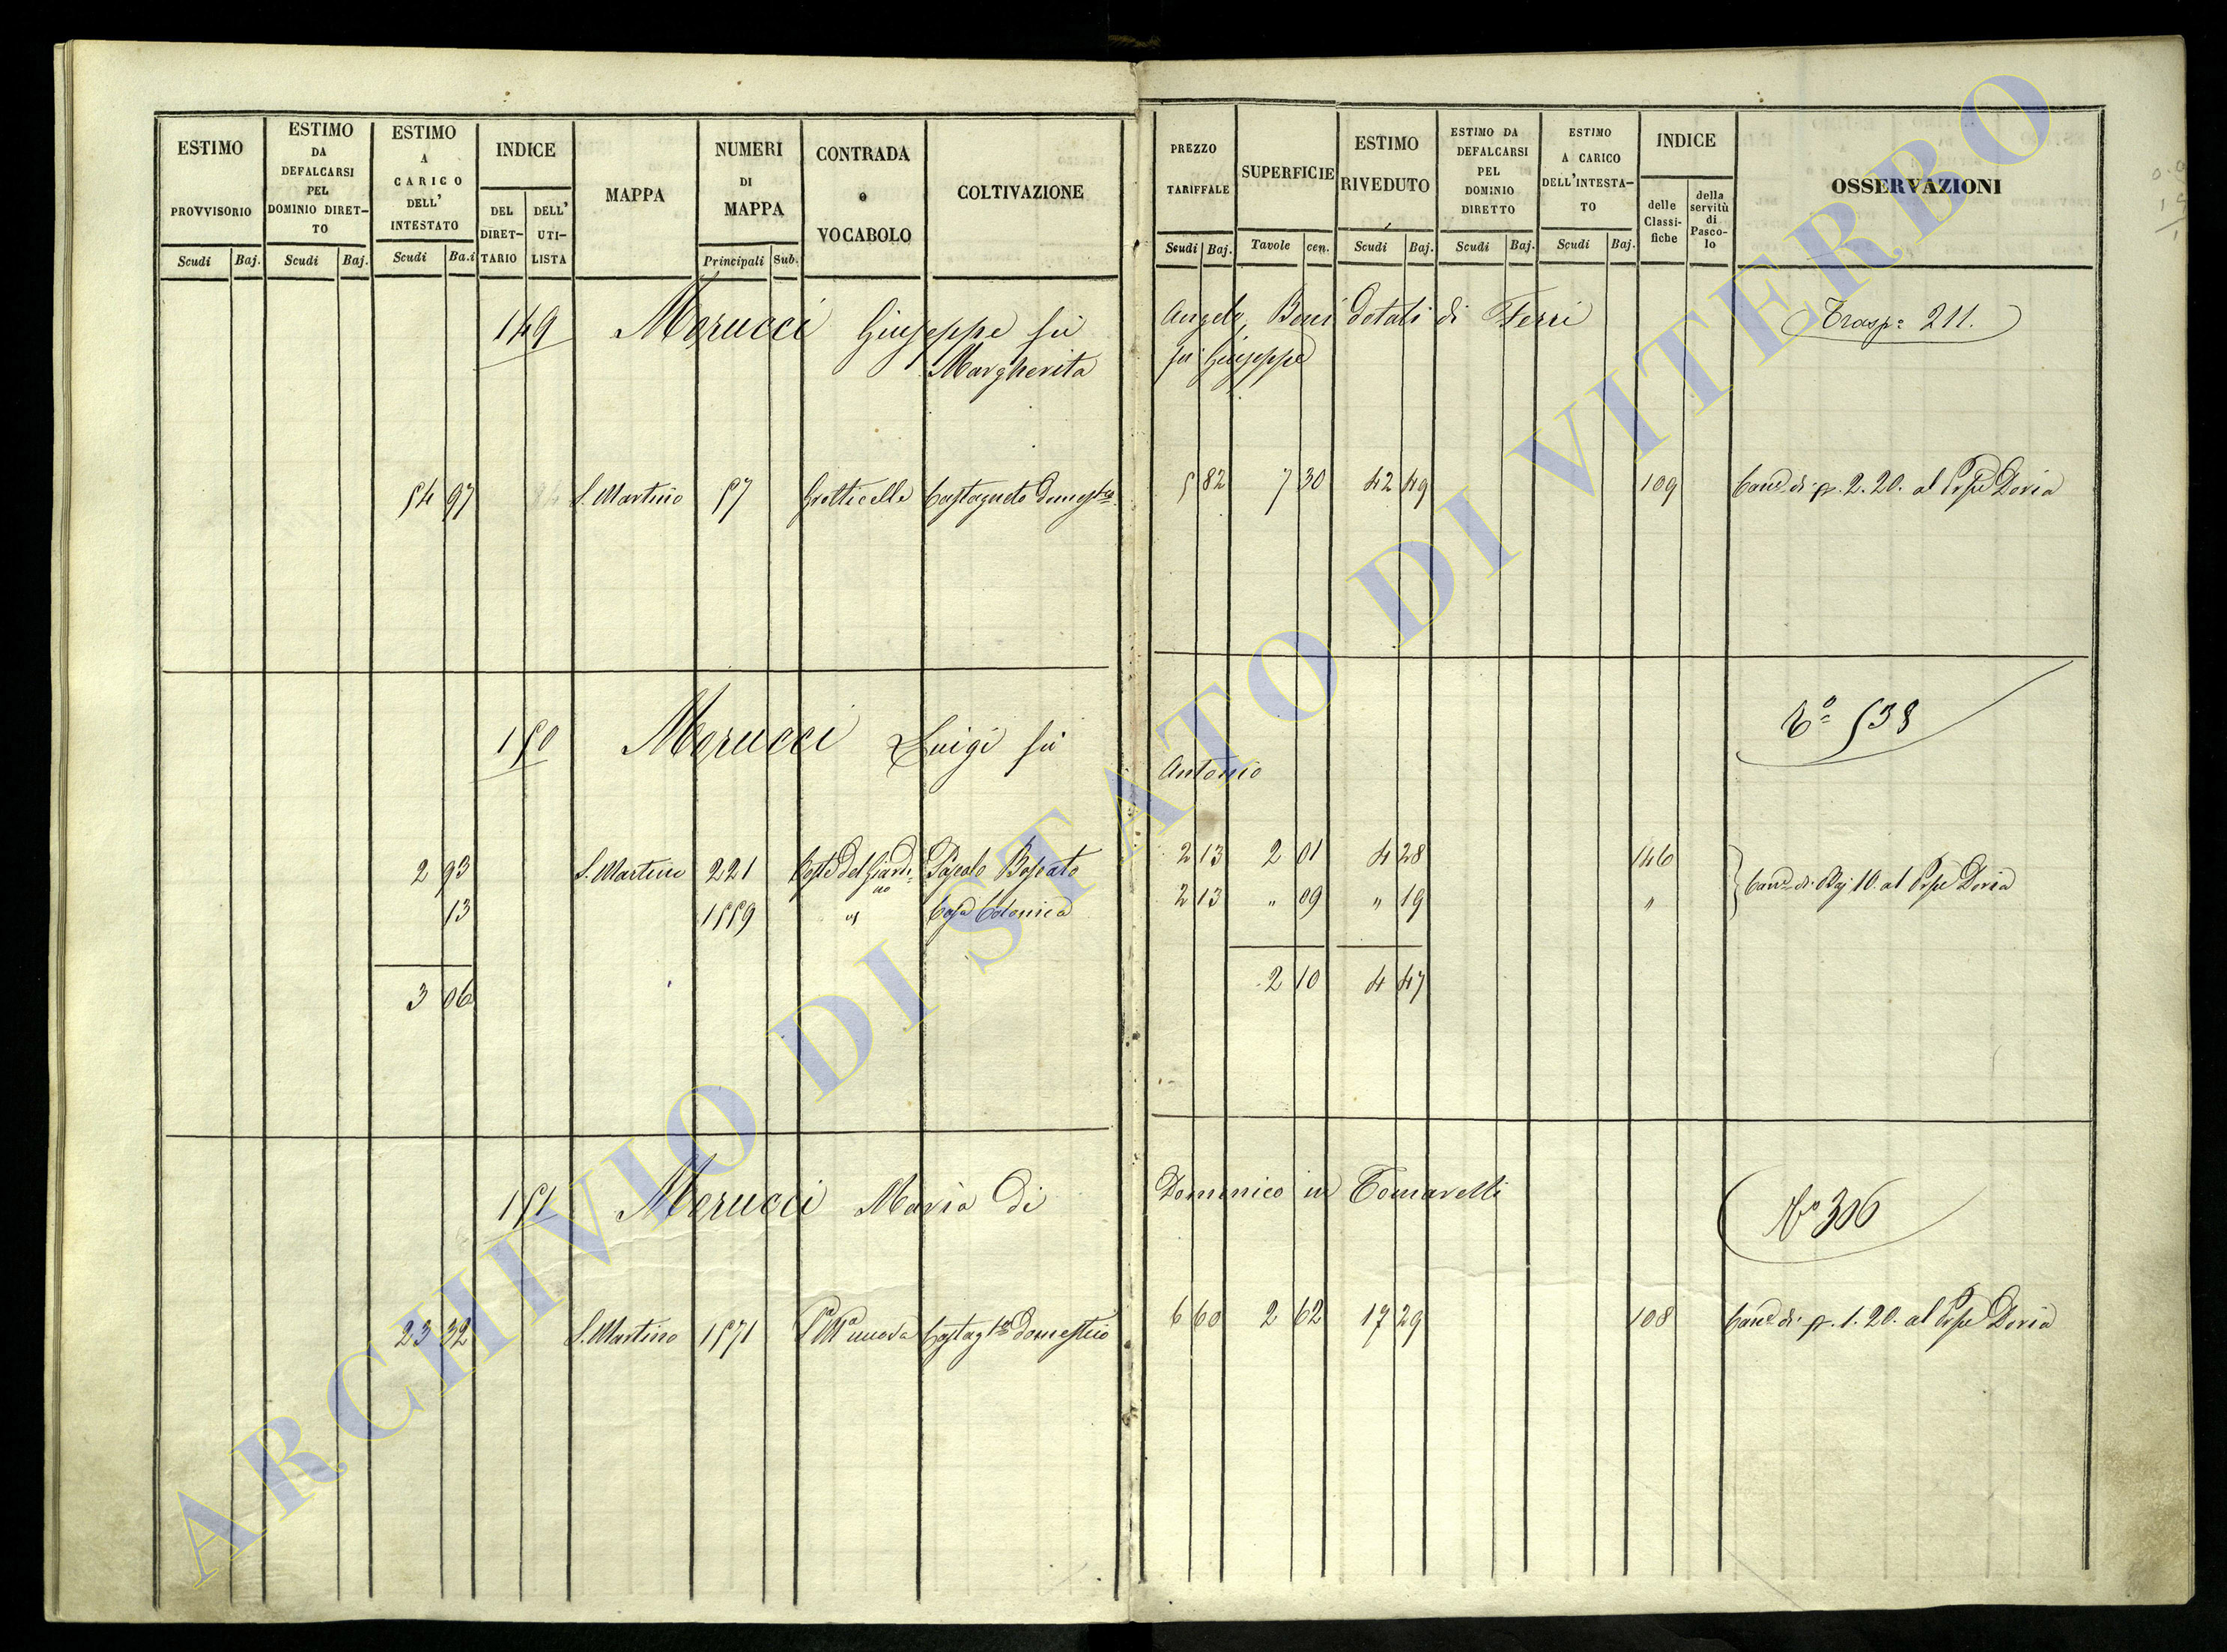 ESTIMO PROVVISORIO
Scudi Baj.
ESTIMO DA DEFALCARSI PEL DOMINIO DIRET-TO
Scudi Baj.
ESTIMO A CARICO DELL' INTESTATO
Scudi Ba.i
INDICE
DEL DIRET-TARIO
DELL' UTI-LISTA
MAPPA
NUMERI DI MAPPA
Principali Sub.
CONTRADA o VOCABOLO
COLTIVAZIONE
PREZZO TARIFFALE
Scudi Baj.
SUPERFICIE
Tavole cen.
ESTIMO RIVEDUTO
Scudi Baj.
ESTIMO DA DEFALCARSI PEL DOMINIO DIRETTO
Scudi Baj.
ESTIMO A CARICO DELL'INTESTA-TO
Scudi Baj.
INDICE
delle Classi-fiche
della servitù di Pasco-lo
OSSERVAZIONI
149 Morucci Giuseppe fù Angelo, Beni Dotali di Ferri Trasp: 211.
Margherita fu Giuseppe
54 97 S. Martino 57 Grotticelle Castagneto Domest.co 5 82 7 30 42 49 109 Can.e di p. 2. 20. al Pspe Doria
150 Morucci Luigi fù Antonio 538
2 93 S. Martino 221 Coste del Giardi=no Pascolo Boscato 2 13 2 01 4 28 146
13 1559 " Casa Colonica 2 13 " 09 " 19 " Can.e di Baj 10. al Pspe Doria
3 06 2 10 4 47
151 Morucci Maria Di Domenico in Tomarelli No 306
23 32 S. Martino 1571 nuova Castag.to Domestico 6 60 2 62 17 29 108 Can.e di p. 1. 20. al Pspe Doria
ARCHIVIO DI STATO DI VITERBO